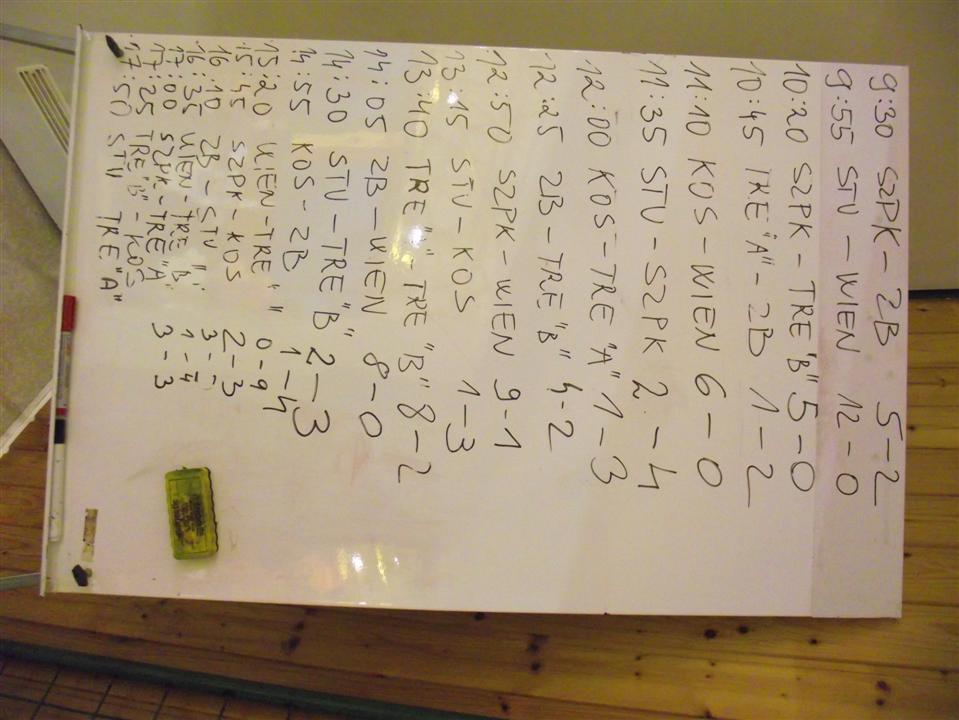 9:30 SZPK - 2B 5-2
9:55 STU - WIEN 12-0
10:20 SZPK - TRE "B" 5-0
10:45 TRE "A" - 2B 1-2
11:10 KOS - WIEN 6-0
11:35 STU - SZPK 2-4
12:00 KOS - TRE "A" 1-3
12:25 2B - TRE "B" 4-2
12:50 SZPK - WIEN 9-1
13:15 STU - KOS 1-3
13:40 TRE - TRE "B" 8-2
14:05 2B - WIEN 8-0
14:30 STU - TRE "B" 2-3
14:55 KOS - 2B 1-4
15:20 WIEN - TRE " " 0-9
15:45 SZPK - KOS 2-3
16:10 2B - STU
16:35 WIEN - TRE "B"
17:00 SZPK - TRE "A" 3-3
17:25 TRE "B" - KOS
17:50 STU TRE "A"